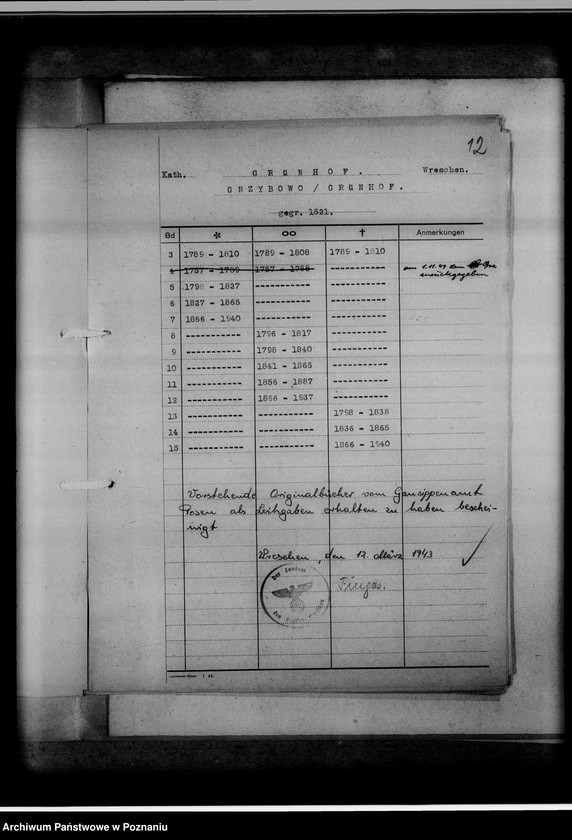 12
Kath. GRÜNHOF. Wreschen.
GRZYBOWO / GRÜNHOF.
gegr. 1521.
Bd * oo † Anmerkungen
3 1789 - 1810 1789 - 1808 1789 - 1810
4 1757 - 1789 1757 - 1788 ----------- am 1.11.47 dem
zurückgegeben
5 1798 - 1827 ----------- -----------
6 1827 - 1865 ----------- -----------
7 1866 - 1940 ----------- -----------
8 ----------- 1796 - 1817 -----------
9 ----------- 1798 - 1840 -----------
10 ----------- 1841 - 1865 -----------
11 ----------- 1856 - 1887 -----------
12 ----------- 1866 - 1937 -----------
13 ----------- ----------- 1798 - 1836
14 ----------- ----------- 1836 - 1865
15 ----------- ----------- 1866 - 1940
Vorstehende Originalbücher vom Gausippenamt
Posen als Leihgaben erhalten zu haben beschei-
nigt
Wreschen, den 12. März 1943
Der Landrat
Fingas.
Archiwum Państwowe w Poznaniu